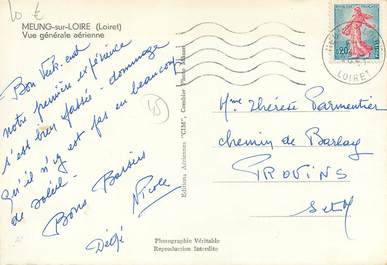 10 €
MEUNG-sur-LOIRE (Loiret)
Vue générale aérienne
Bon Week-end
notre première expérience
s'est bien passée - dommage
qu'il n'y est pas eu beaucoup
de soleil.
Bons Baisers
Nicole
Dédé
Editions Aériennes "CIM", Combier
Photographie Véritable
Reproduction Interdite
0,20
LOIRET
Mme Thérèse Parmentier
chemin de Barlay
PROVINS
S et M